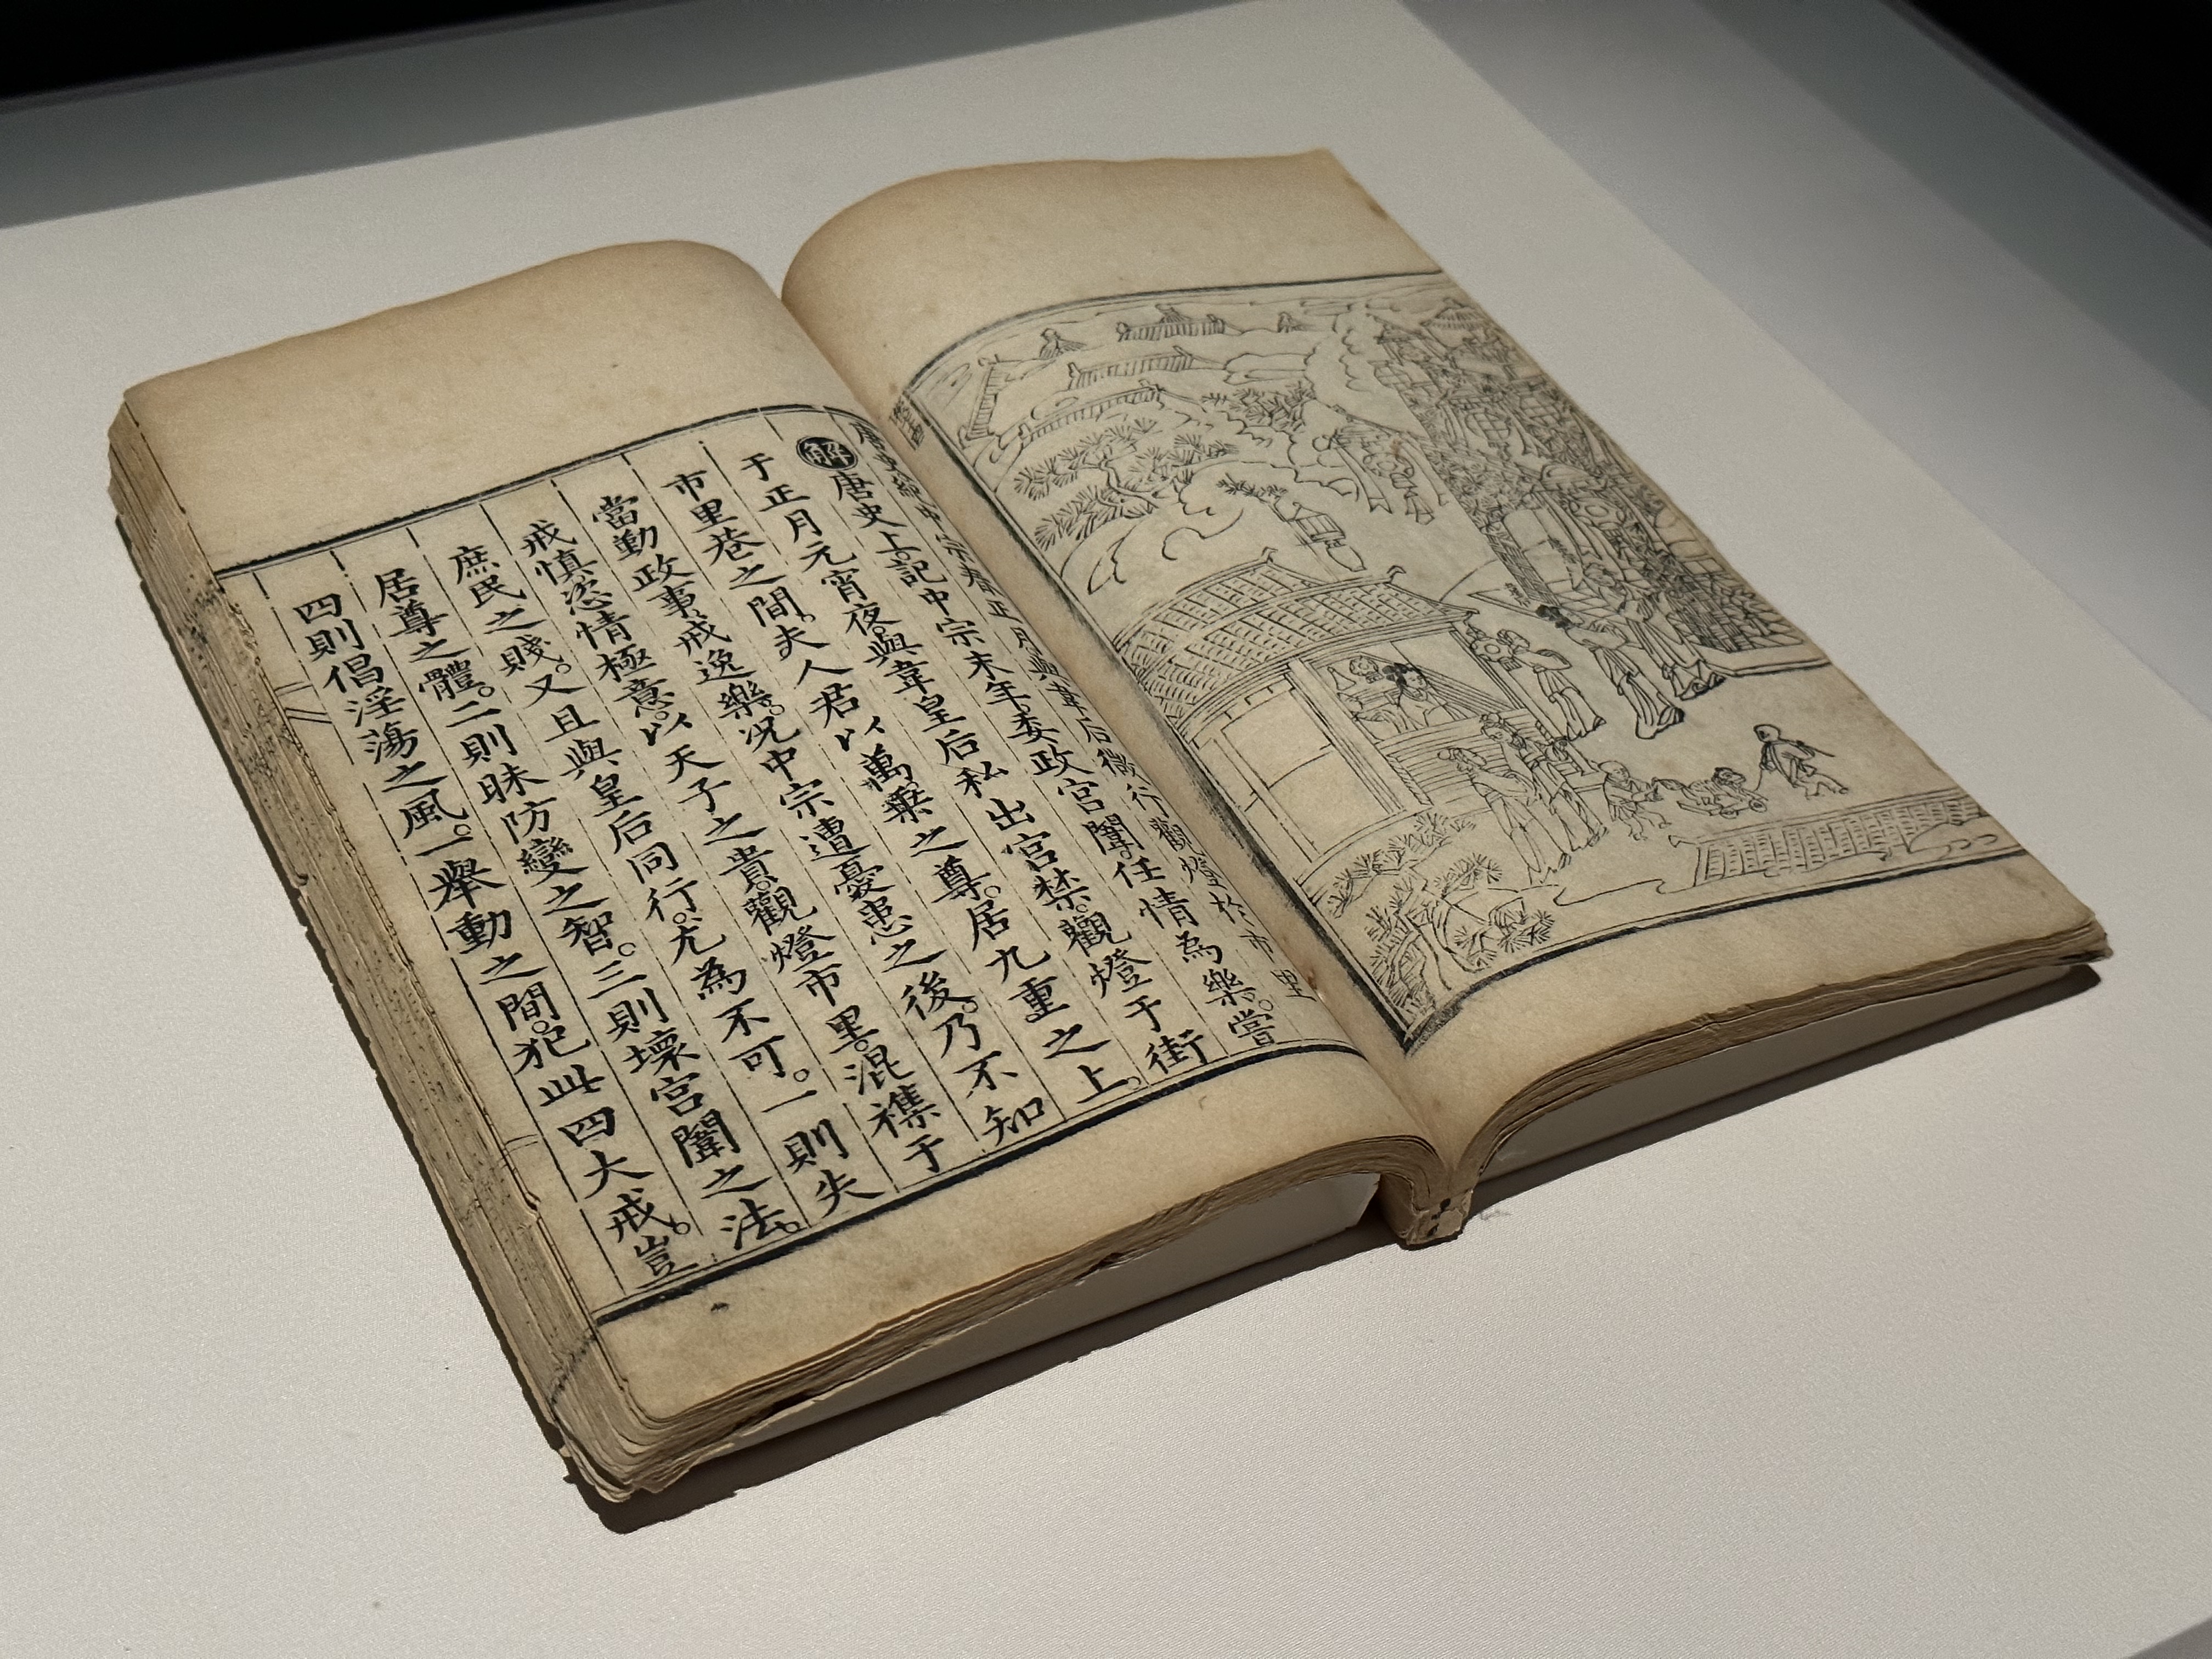 唐史紀中宗春正月與韋后微行觀燈於市里
解唐史上。記中宗末年。委政宮闈。任情為樂。嘗
于正月元宵夜。與韋皇后私出宮禁。觀燈于街
市里巷之間。夫人君以萬乗之尊。居九重之上。
當勤政事。戒逸樂。况中宗遭憂患之後。乃不知
戒慎。恣情極意。以天子之貴。觀燈市里。混襍于
庶民之賤。又且與皇后同行。尤為不可。一則失
居尊之體。二則昧防變之智。三則壞宮闈之法。
四則倡淫蕩之風。一舉動之間。犯此四大戒。豈